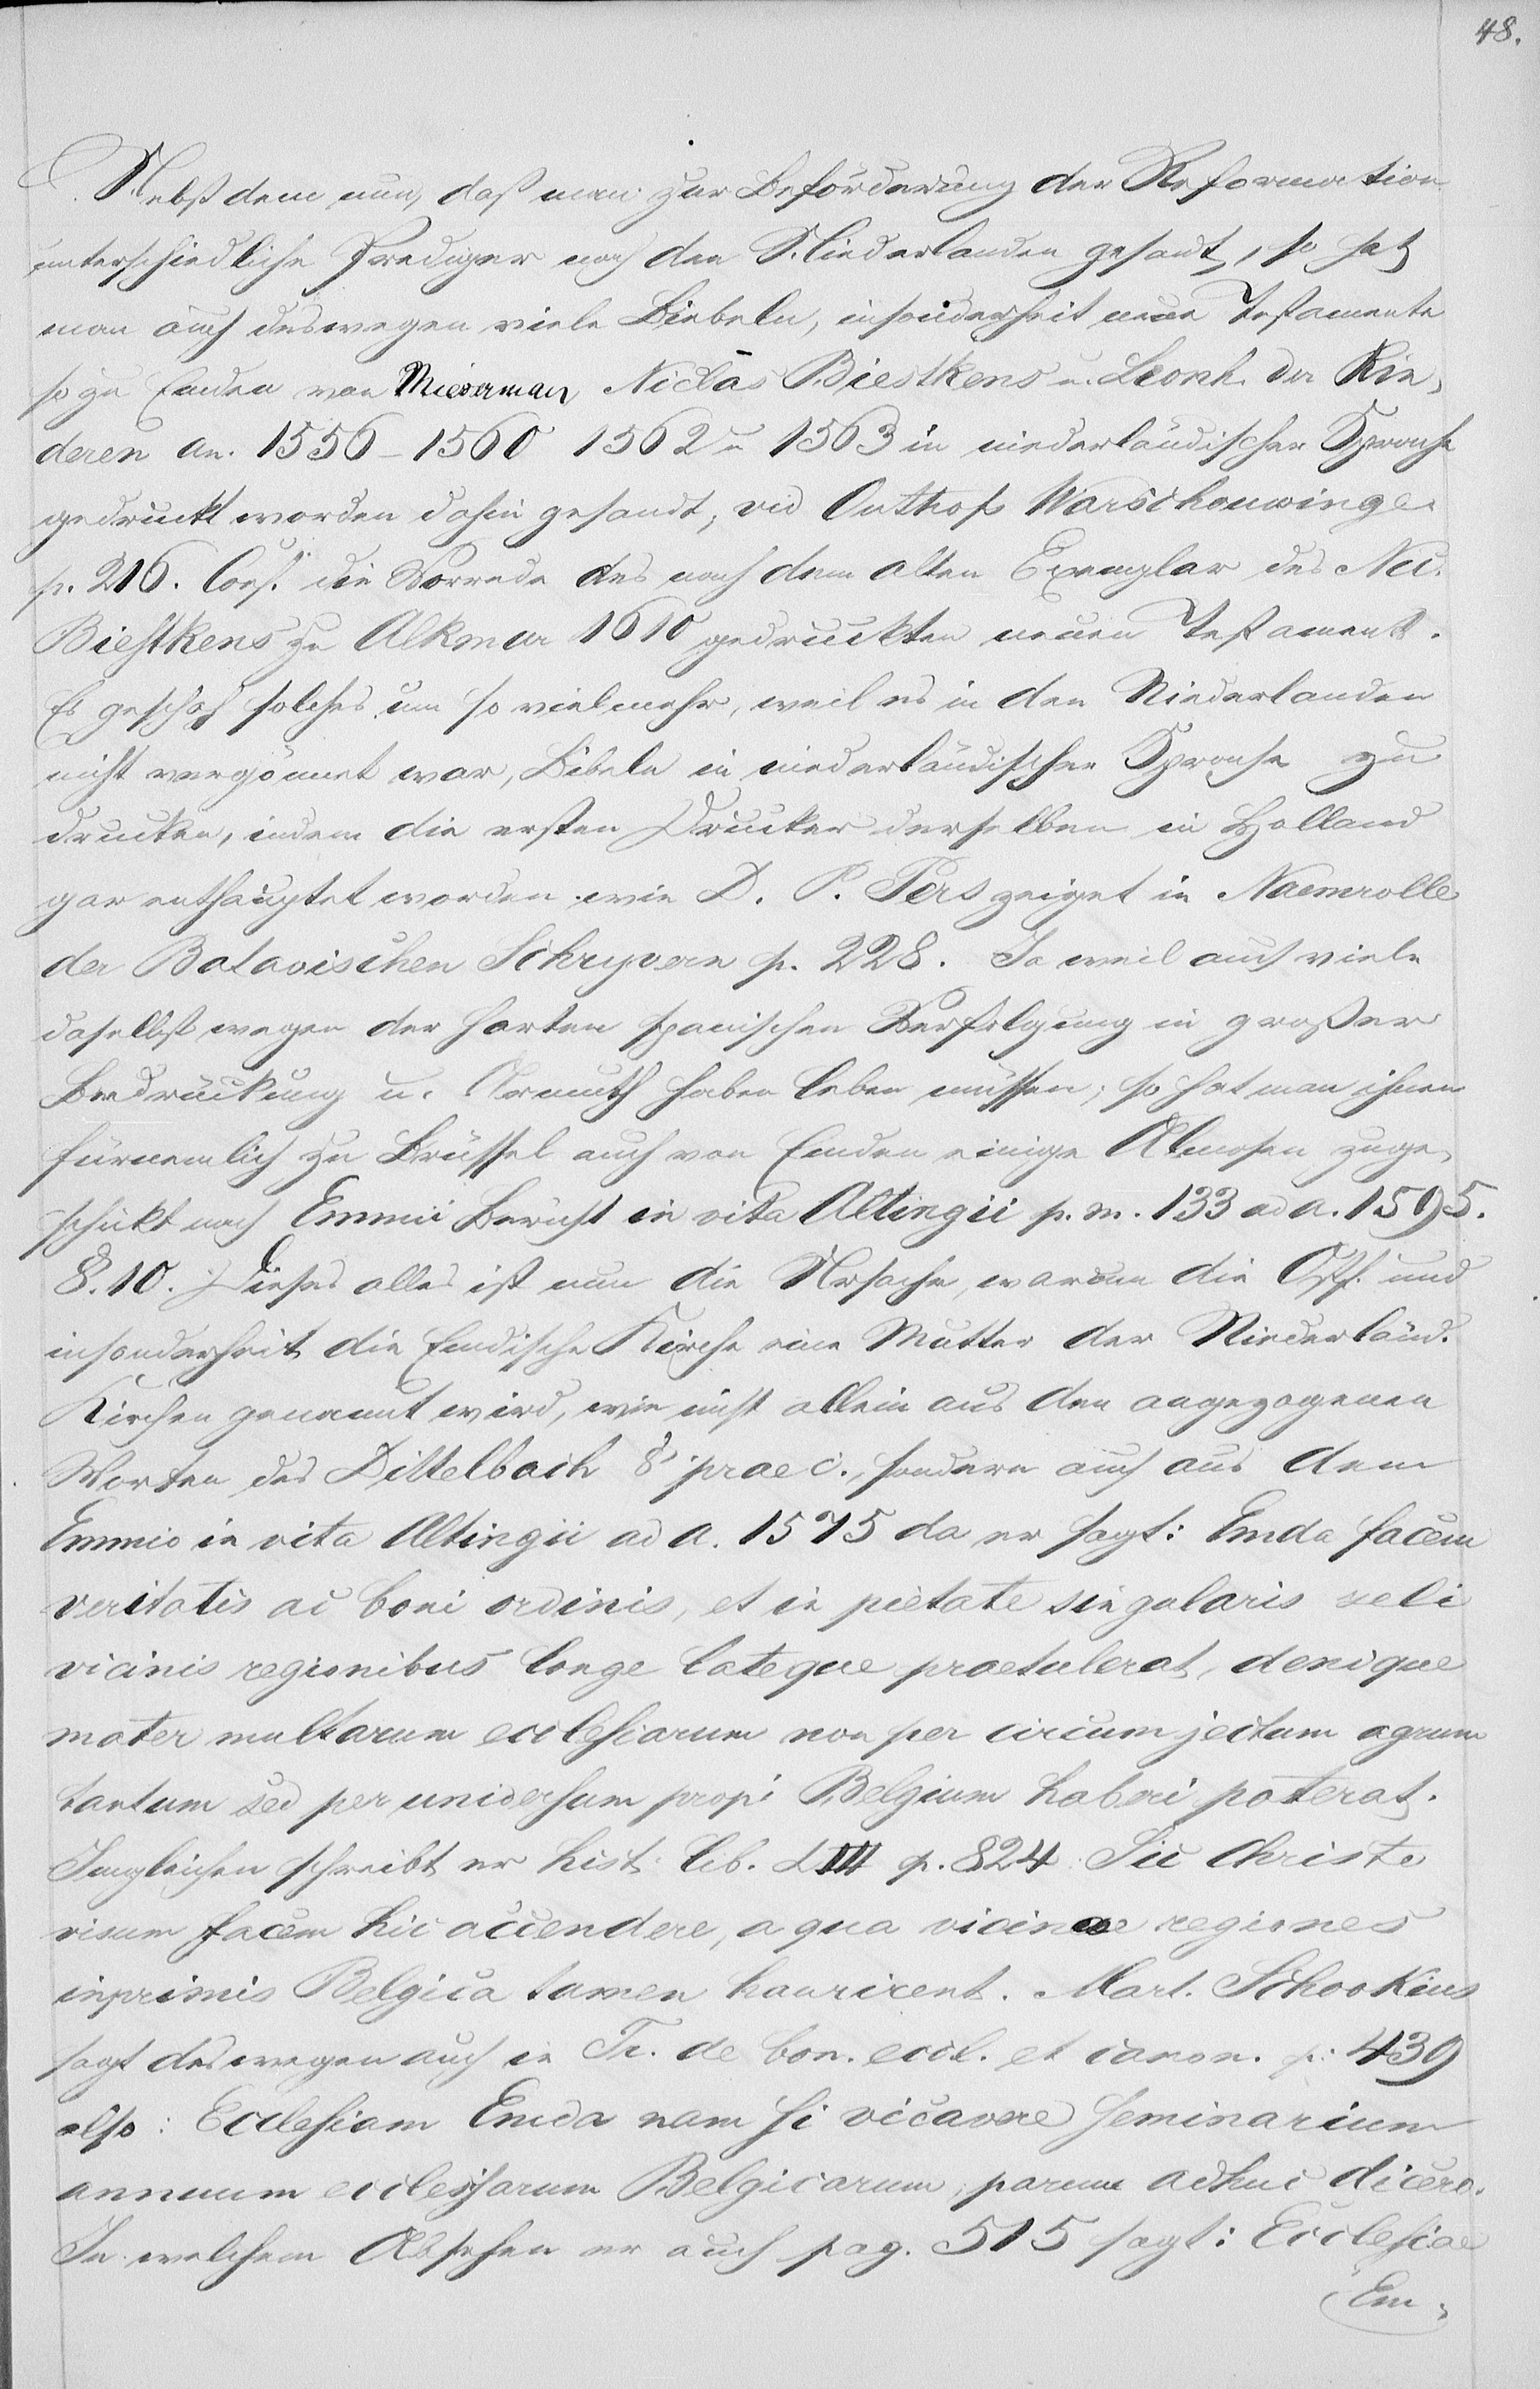 48.
Nebst dem nun, daß man zur Beförderung der Reformation
unterschiedliche Prediger nach den Niederlanden gesandt, so hat
man auch deswegen viele Biebeln, insonderheit neue Testamente
so zu Emden von Mierman Niclas Biestkens u. Leonh. der Kin,
deren an. 1556–1560 1562 u 1563 in niederländischer Sprache
gedruckt worden dahin gesandt, vid Outhof Warschouwinge
p. 216. Conf. die Vorrede des nach dem alten Exemplar des Nic.
Biestkens zu Alkmar 1610 gedruckten neuen Testament.
Es geschah solches um so vielmehr, weil es in den Niederlanden
nicht vergönnet war, Bibeln in niederländischer Sprache zu
drucken, indem die ersten Drucker derselben in Holland
gar enthauptet worden wie D. P. Pers zeiget in Naemrolle
der Batavischen Schryvern p. 228. Ja weil auch viele
daselbst wegen der harten spanischen Verfolgung in großer
Bedrückung u. Armuth haben leben müssen; so hat man ihnen
fürnemlich zu Brüssel auch von Emden einige Almosen zuge,
schickt nach Emmii Bericht in vita Altingii p. m. 133 ad a. 1595.
§. 10. Dieses alles ist nun die Ursache, warum die Ostf. und
insonderheit die Emdische Kirche eine Mutter der Niederländ.
Kirchen genannt wird, wie nicht allein aus den angezogenen
Worten des Dittelbach § praec., sondern auch aus dem
Emmio in vita Altingii ad a. 1575 da er sagt: Emda facem
veritatis ac boni ordinis, et in pietate singularis zeli
vicinis regionibus longe lateque praetulerat, denique
mater multarum ecclesiarum non per circumjectum agrum
tantum sed per universum propi Belgium haberi poterat.
Imgleichen schreibt er hist. lib. LIII p. 824 Sic Christo
visum facem hic accendere, a qua vicinae regiones
inprimis Belgica lumen haurirent. Mart. Schookius
sagt deswegen auch in Tr. de bon. eccl. et canon. p. 439
also: Ecclesiam Emda nam si vocavere seminarium
annuum ecclesiarum Belgicarum, parum adhuc dicero.
In welchem Absehen er auch pag. 515 sagt: Ecclesiae
Em,